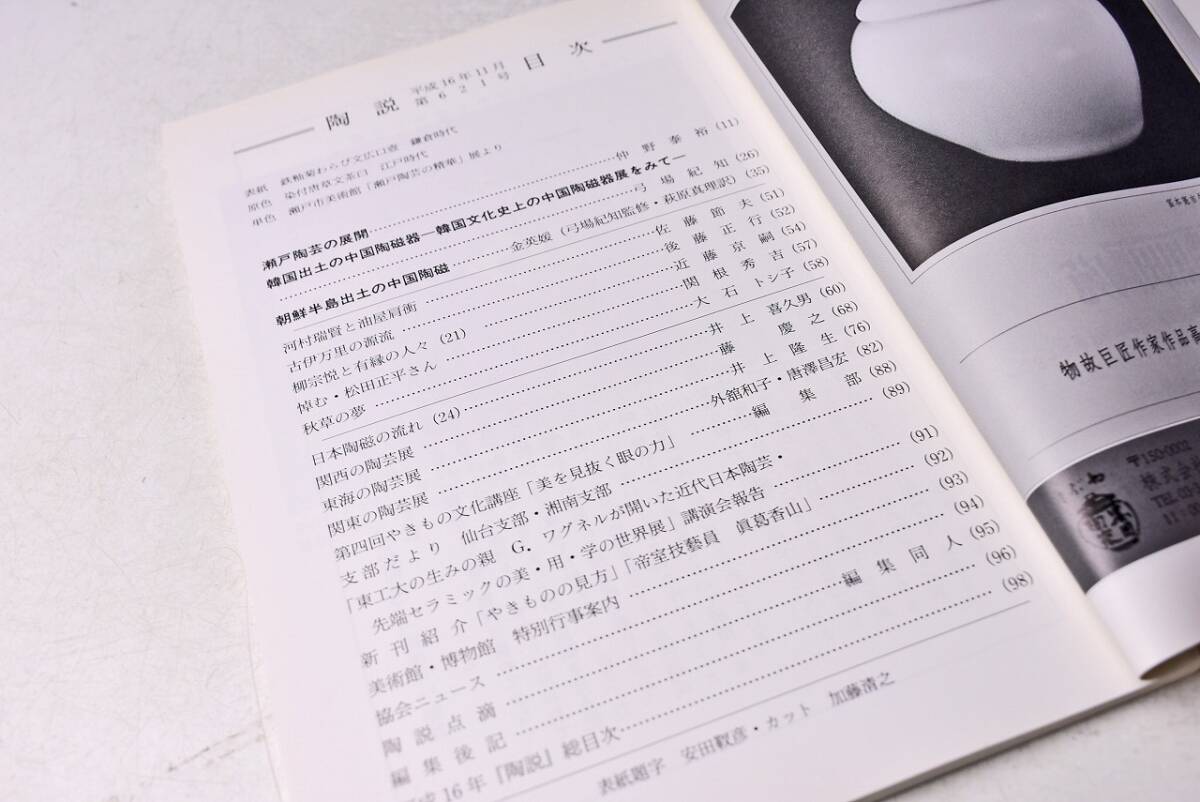 陶説 平成16年11月 第621号 目次
表紙 鉄釉菊わらび文広口壺 鎌倉時代
原色 染付唐草文茶臼 江戸時代
単色 瀬戸市美術館「瀬戸陶芸の精華」展より
瀬戸陶芸の展開……仲野泰裕(11)
韓国出土の中国陶磁器―韓国文化史上の中国陶磁器展をみて―
……弓場紀知(26)
朝鮮半島出土の中国陶磁……金英媛(弓場紀知監修・萩原真理訳)(35)
河村瑞賢と油屋肩衝……佐藤節夫(51)
古伊万里の源流……後藤正行(52)
柳宗悦と有縁の人々(21)……近藤京嗣(54)
悼む・松田正平さん……関根秀吉(57)
秋草の夢……大石トシ子(58)
日本陶磁の流れ(24)……井上喜久男(60)
関西の陶芸展……藤慶之(68)
東海の陶芸展……井上隆生(76)
関東の陶芸展……外舘和子・唐澤昌宏(82)
第四回やきもの文化講座「美を見抜く眼の力」……編集部(88)
支部だより 仙台支部・湘南支部……(89)
「東工大の生みの親 G.ワグネルが開いた近代日本陶芸・
先端セラミックの美・用・学の世界展」講演会報告……(91)
新刊紹介「やきものの見方」「帝室技藝員 眞葛香山」……(92)
美術館・博物館 特別行事案内……(93)
協会ニュース……(94)
陶説点滴……編集同人(95)
編集後記……(96)
平成16年『陶説』総目次……(98)
表紙題字 安田靫彦・カット 加藤清之
物故巨匠作家作品
〒150-0002
株式会
TEL